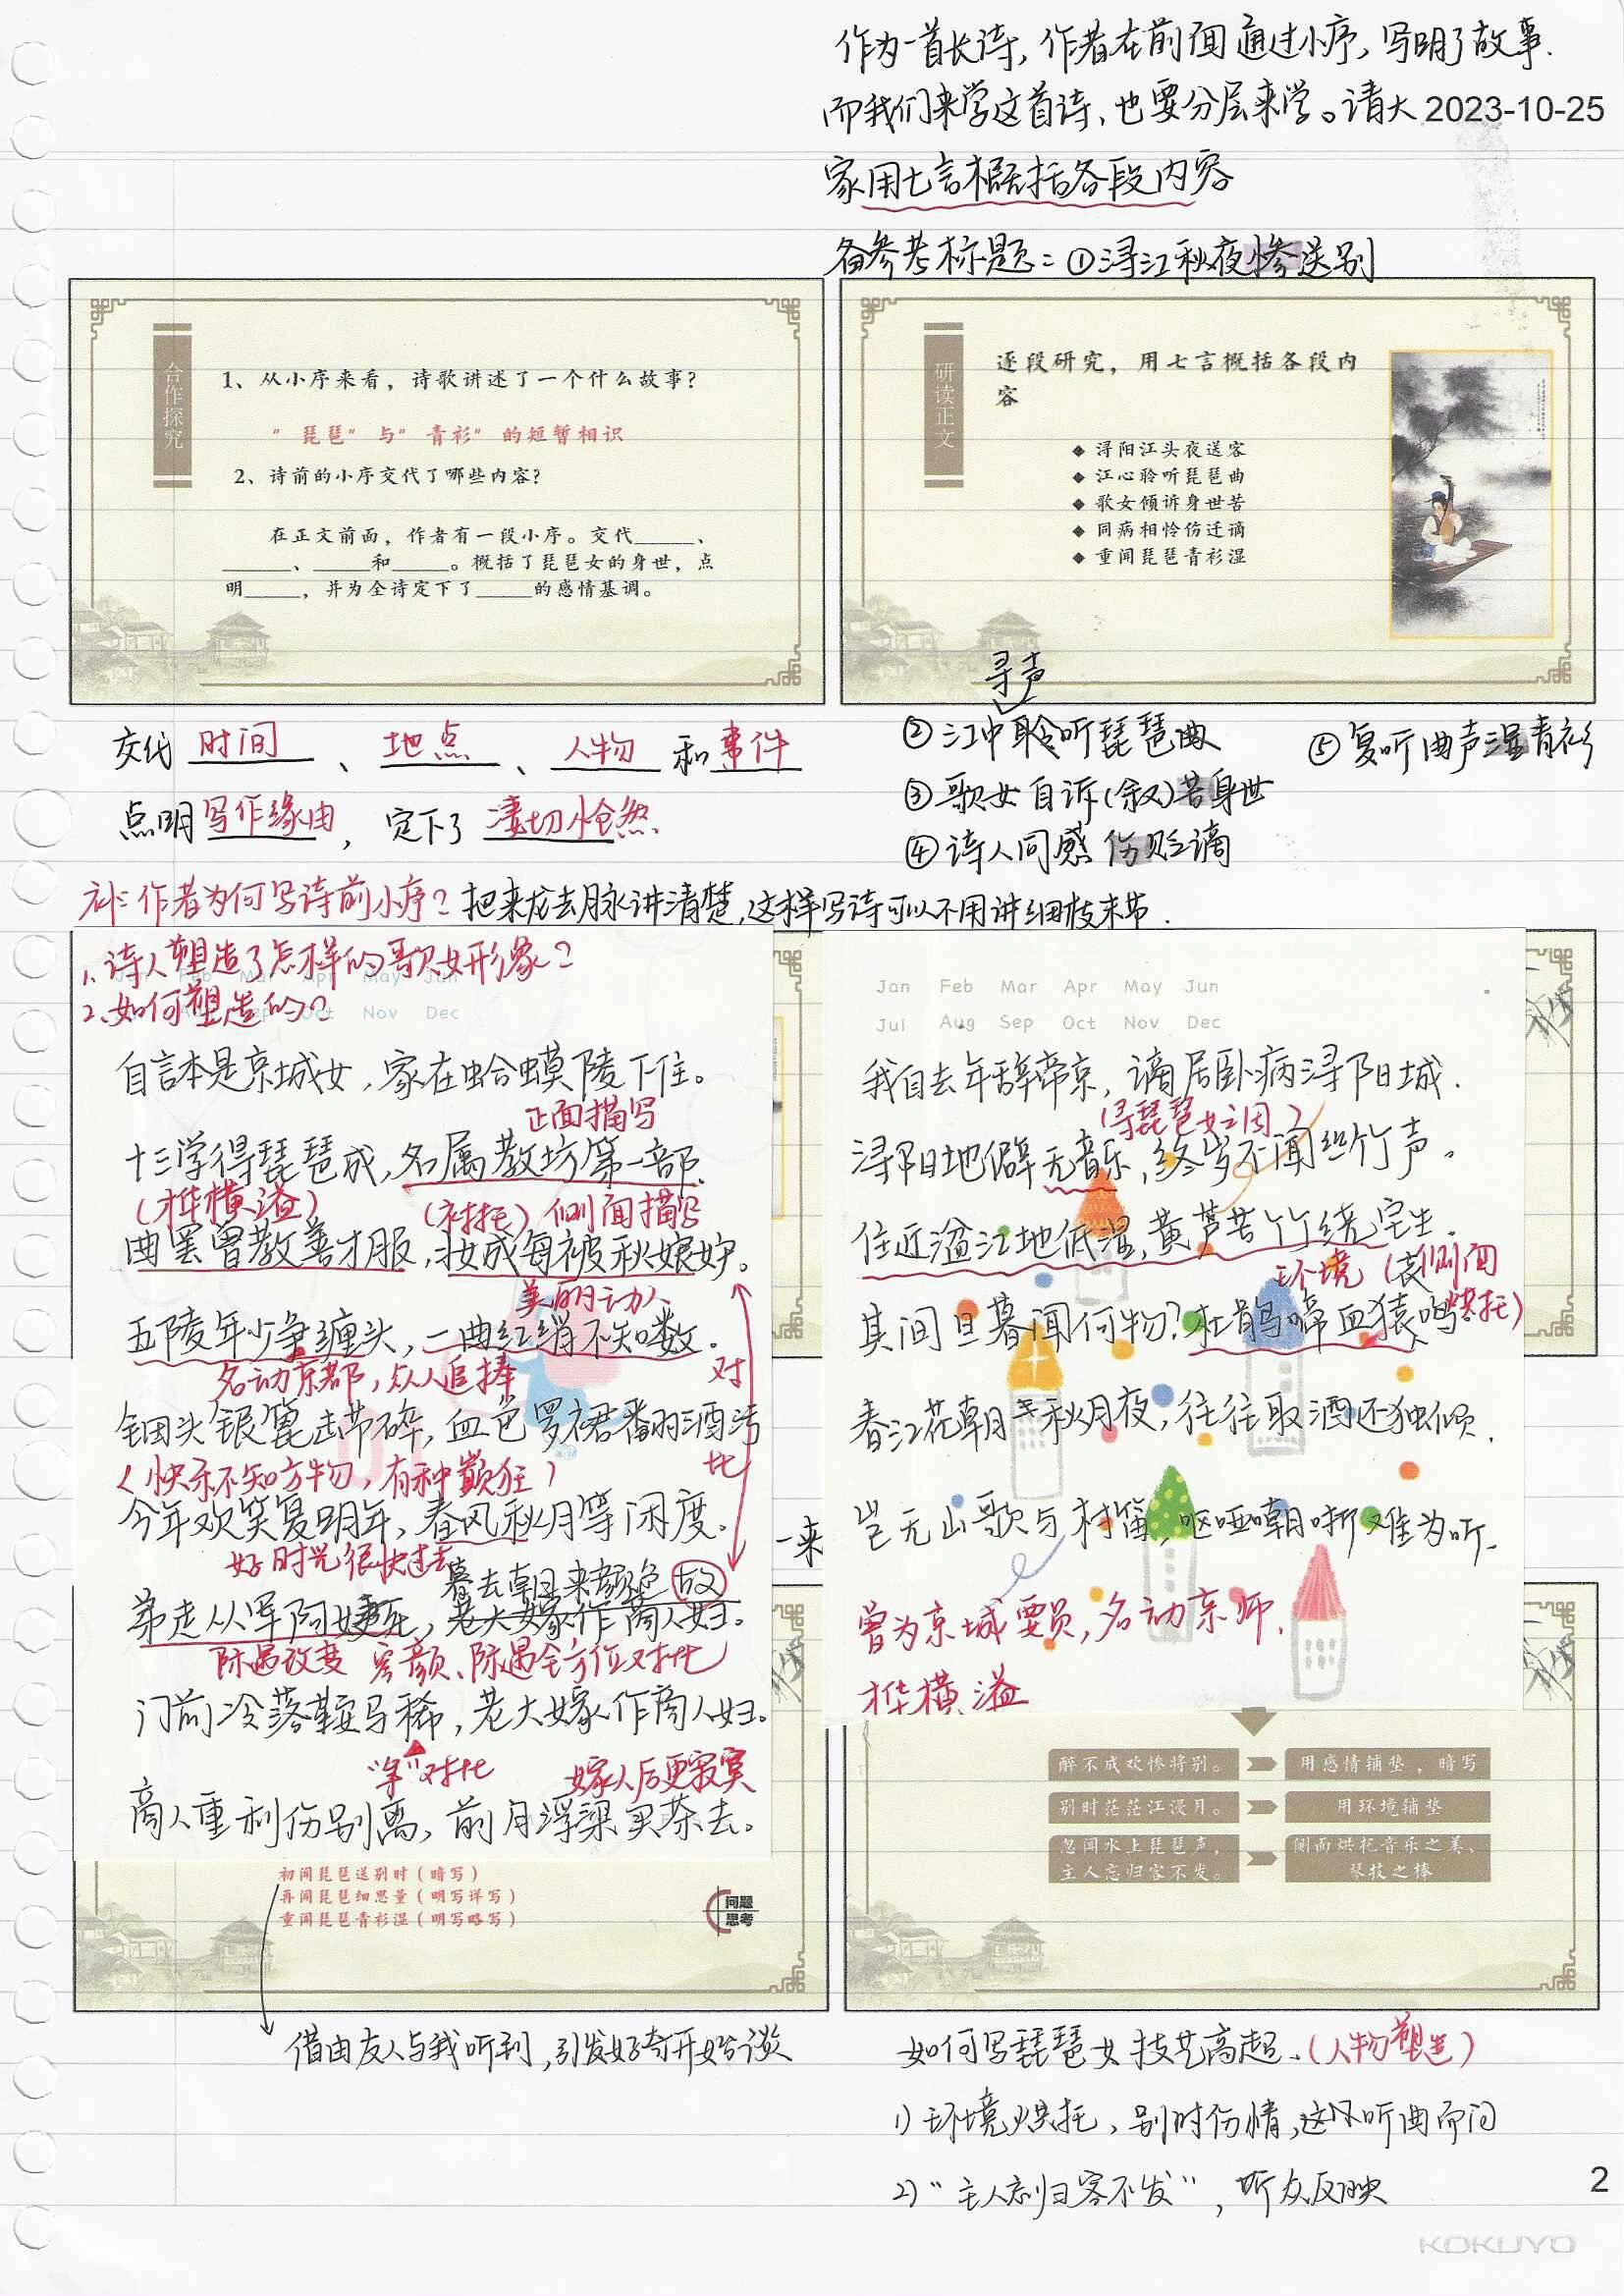 作为一首长诗，作者在前面通过小序，写明了故事.
而我们来学这首诗、也要分层来学。请大
2023-10-25
家用七言概括各段内容
备参考标题：①浔江秋夜惨送别
合作探究
1、从小序来看，诗歌讲述了一个什么故事？
“琵琶”与“青衫”的短暂相识
2、诗前的小序交代了哪些内容？
在正文前面，作者有一段小序。交代_____、
_____、_____和_____。概括了琵琶女的身世，点
明_____，并为全诗定下了_____的感情基调。
研读正文
逐段研究，用七言概括各段内
容
◆ 浔阳江头夜送客
◆ 江心聆听琵琶曲
◆ 歌女倾诉身世苦
◆ 同病相怜伤迁谪
◆ 重闻琵琶青衫湿
交代 时间 、 地点 、 人物 和 事件
点明 写作缘由 ， 定下了 凄切怆然.
寻声
②江中聆听琵琶曲
③歌女自诉(叙)苦身世
④诗人同感伤贬谪
⑤复听曲声湿青衫
补：作者为何写诗前小序？把来龙去脉讲清楚，这样写诗可以不用讲细枝末节.
1、诗人塑造了怎样的歌女形象？
2、如何塑造的？
Jan Feb Mar Apr May Jun
Oct Nov Dec
自言本是京城女，家在蛤蟆陵下住。
正面描写
十三学得琵琶成，名属教坊第一部.
(才华横溢) (衬托) 侧面描写
曲罢曾教善才服，妆成每被秋娘妒。
美丽动人
五陵年少争缠头，一曲红绡不知数。
名动京都，众人追捧
钿头银篦击节碎，血色罗裙翻酒污
(快乐不知方物，有种癫狂)
今年欢笑复明年，春风秋月等闲度.
好时光很快过去
暮去朝来颜色故
弟走从军阿姨死，老大嫁作商人妇。
际遇改变 容颜、际遇全方位对比
门前冷落鞍马稀，老大嫁作商人妇。
“争”对比 嫁人后更寂寞
商人重利伤别离，前月浮梁买茶去。
对
比
一来
Jan Feb Mar Apr May Jun
Jul Aug Sep Oct Nov Dec
我自去年辞帝京，谪居卧病浔阳城.
(寻琵琶女之因)
浔阳地僻无音乐，终岁不闻丝竹声。
住近湓江地低湿，黄芦苦竹绕宅生.
环境 (哀) (侧面烘托)
其间旦暮闻何物？杜鹃啼血猿哀鸣
春江花朝秋月夜，往往取酒还独倾.
岂无山歌与村笛，呕哑嘲哳难为听.
曾为京城要员，名动京师.
才华横溢
初闻琵琶送别时（暗写）
再闻琵琶细思量（明写详写）
重闻琵琶青衫湿（明写略写）
问题
思考
醉不成欢惨将别。 用感情铺垫，暗写
别时茫茫江浸月。 用环境铺垫
忽闻水上琵琶声，
主人忘归客不发。
侧面烘托音乐之美、
琴技之棒
借由友人与我听到，引发好奇开始谈
如何写琵琶女技艺高超、(人物塑造)
1) 环境烘托，别时伤情，这时听曲而问
2) “主人忘归客不发”，听众反映
2
KOKUYO